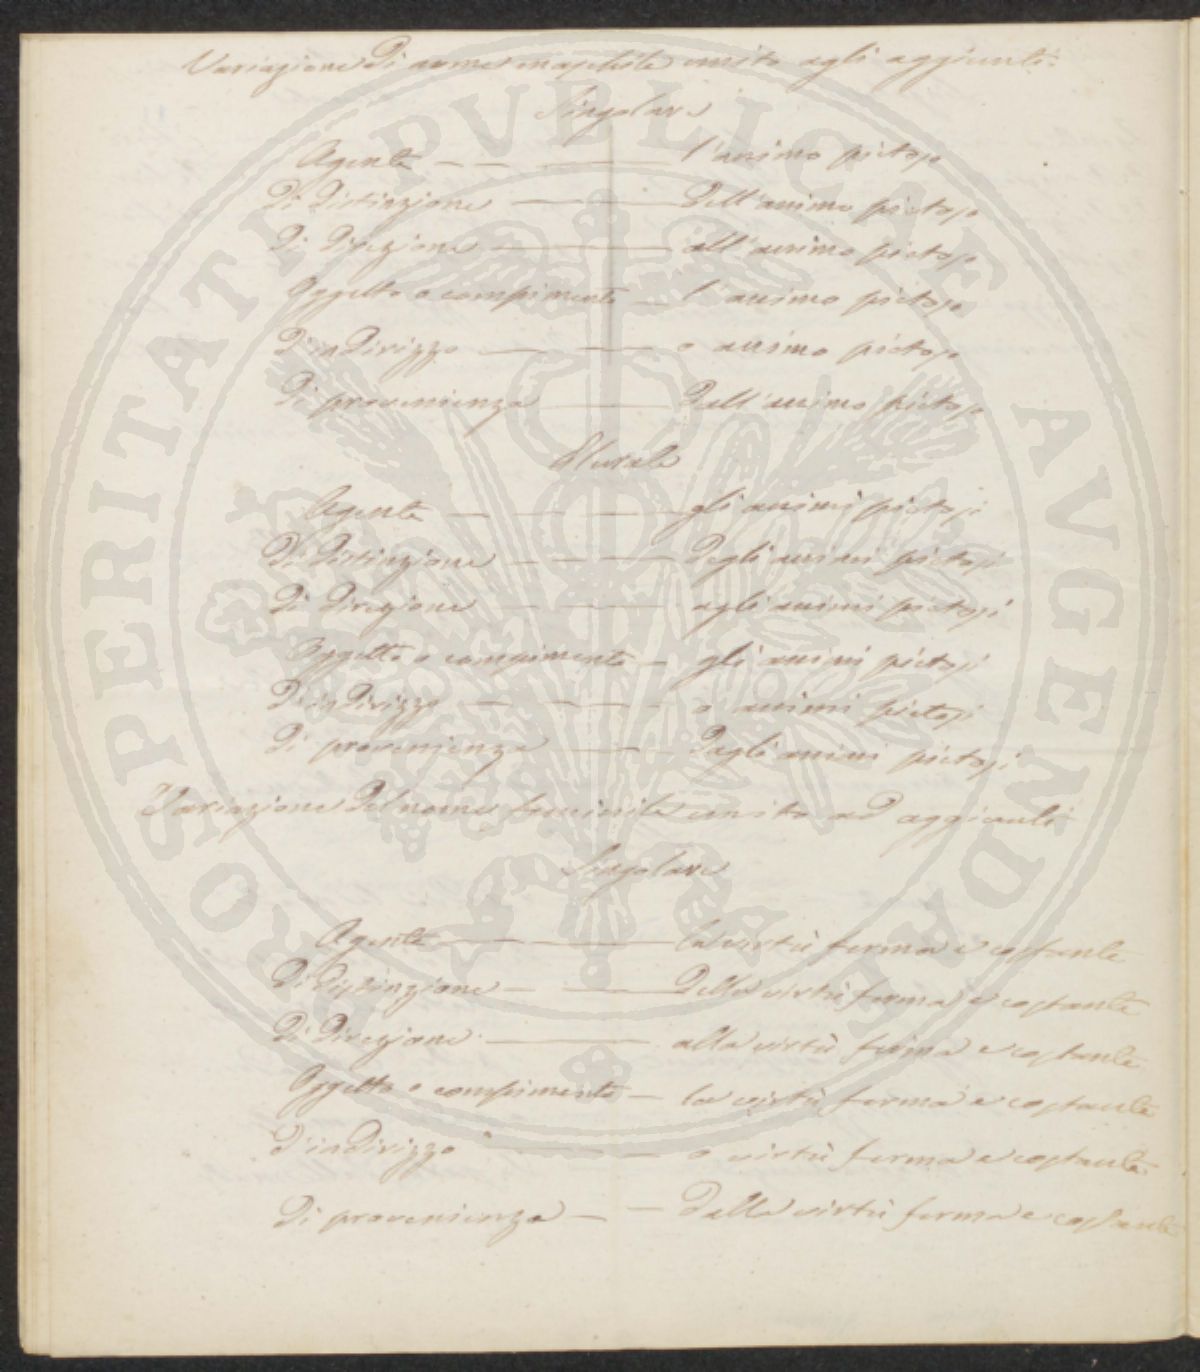 Variazione di nome maschile unito agli aggiunti.
Singolare
Agente — — — l'animo pietoso
Di distinzione — — dell'animo pietoso
Di direzione — — all'animo pietoso
Oggetto o compimento — l'animo pietoso
D'indirizzo — — o animo pietoso
Di provenienza — dall'animo pietoso
Plurale
Agente — — — gli animi pietosi
Di distinzione — — — degli animi pietosi
Di direzione — — — agli animi pietosi
Oggetto o compimento — gli animi pietosi
D'indirizzo — — — — o animi pietosi
Di provenienza — — dagli animi pietosi
Variazione del nome feminile unito ad aggiunti
Singolare
Agente — — — la virtù ferma e costante
Di distinzione — — della virtù ferma e costante
Di direzione — alla virtù ferma e costante
Oggetto o compimento — la virtù ferma e costante
D'indirizzo — — — o virtù ferma e costante
Di provenienza — — dalla virtù ferma e costante
PROSPERITATI PVBLICAE AVGENDAE